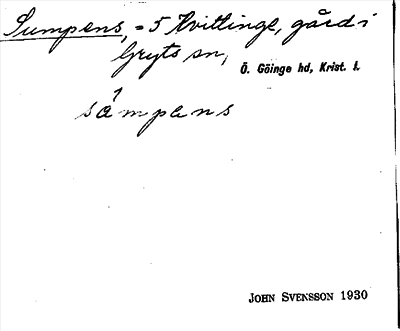 Sumpens, = 5 Hvittinge, gård i
Gryts sn,
Ö. Göinge hd, Krist. l.
såmpens
JOHN SVENSSON 1930